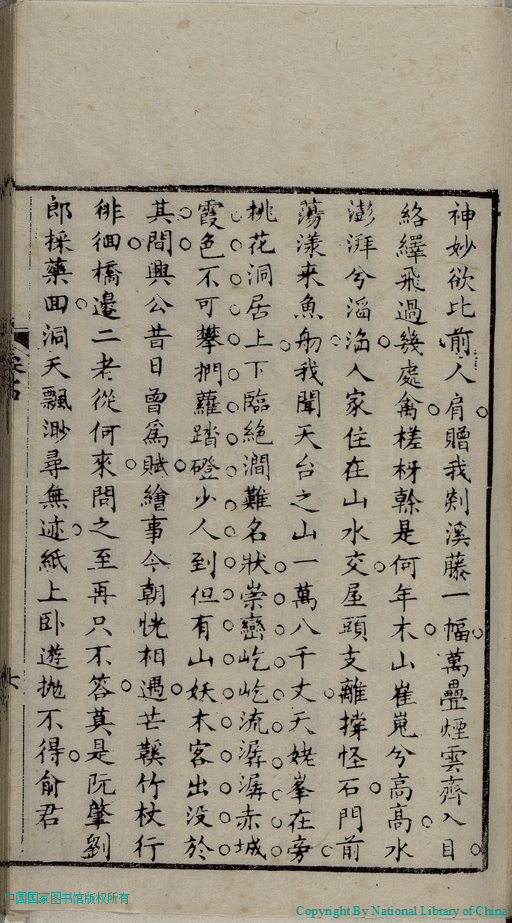 神妙欲比前人肩贈我剡溪藤一幅萬疊煙雲齊入目
絡繹飛過幾處禽槎枒幹是何年木山崔嵬兮高高水
澎湃兮滔滔人家住在山水交屋頭支離撐怪石門前
蕩漾來魚舠我聞天台之山一萬八千丈天姥峯在旁
桃花洞居上下臨絶澗難名狀崇巒屹屹流潺潺赤城
霞色不可攀捫蘿踏磴少人到但有山妖木客出没於
其間興公昔日曾爲賦繪事今朝恍相遇芒鞵竹杖行
徘徊橋邉二老從何來問之至再只不答莫是阮肇劉
郎採藥回洞天飄渺尋無迹紙上卧遊抛不得俞君
中国国家图书馆版权所有
Copyright By National Library of China